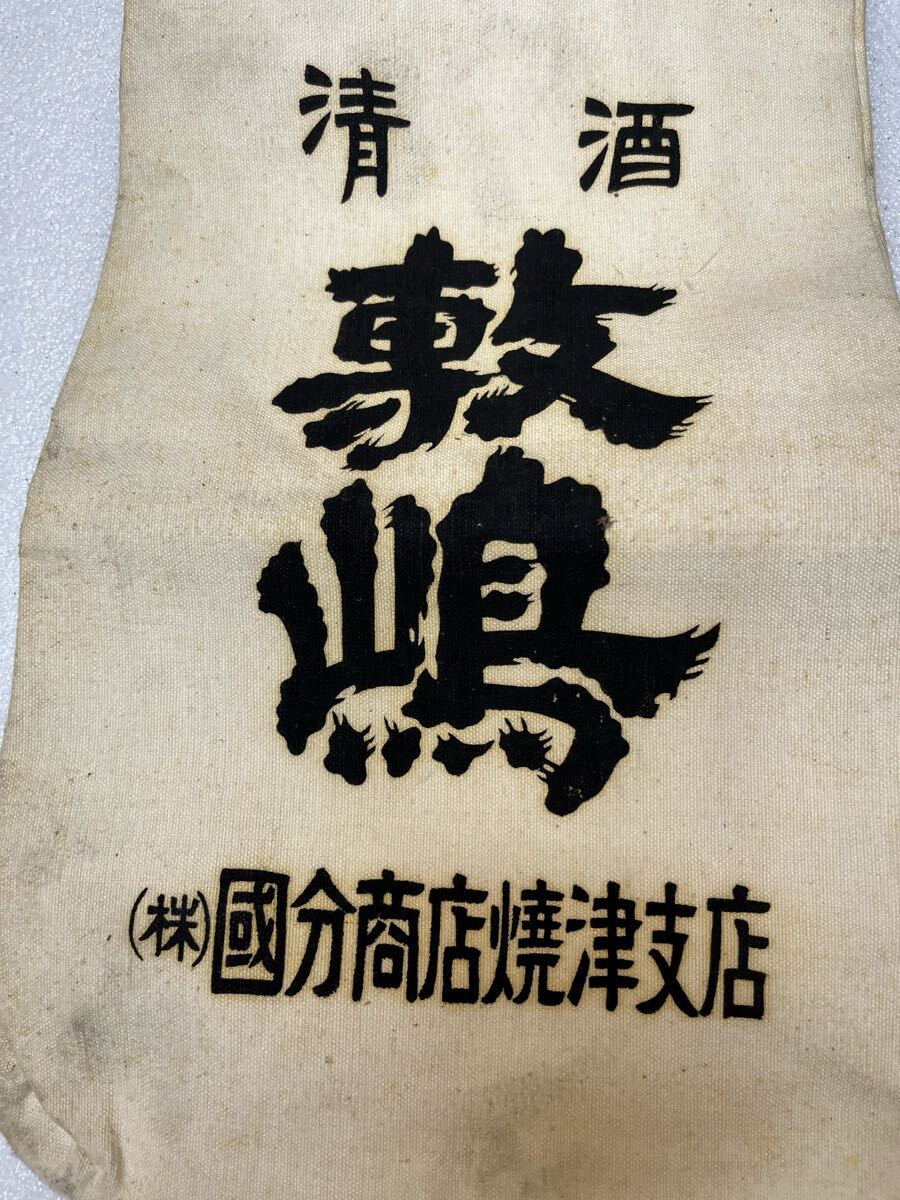 清酒
敷嶋
(株)國分商店焼津支店